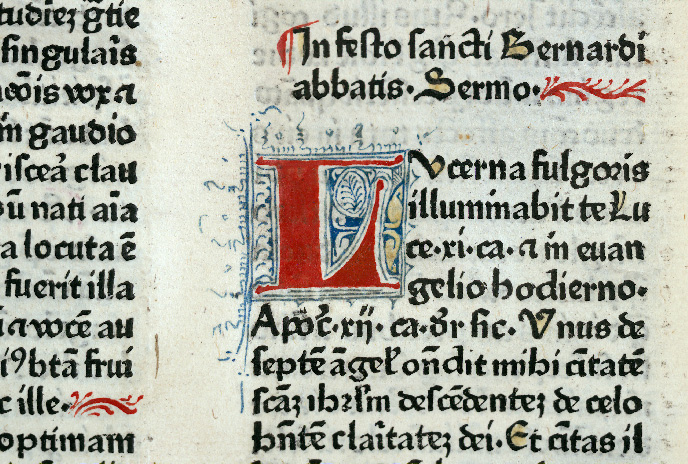 tudieʒ gr̄tie
singularis
vox ⁊
in gaudio
clau
nati aīa
a locuta ē
fuerit illa
⁊ vocē au
btā frui
c ille.
optimam
In festo sancti Bernardi
abbatis. Sermo.
Lucerna fulgoris
illuminabit te Lu
ce .xi. ca. ⁊ in euan
gelio hodierno.
Apoc̄. xij. ca. dr̄ sic. Vnus de
septē āgeł ondit mihi c̄itatē
scāʒ ihr̄lm descēdenteʒ de celo
hn̄tē claritateʒ dei. Et c̄itas il